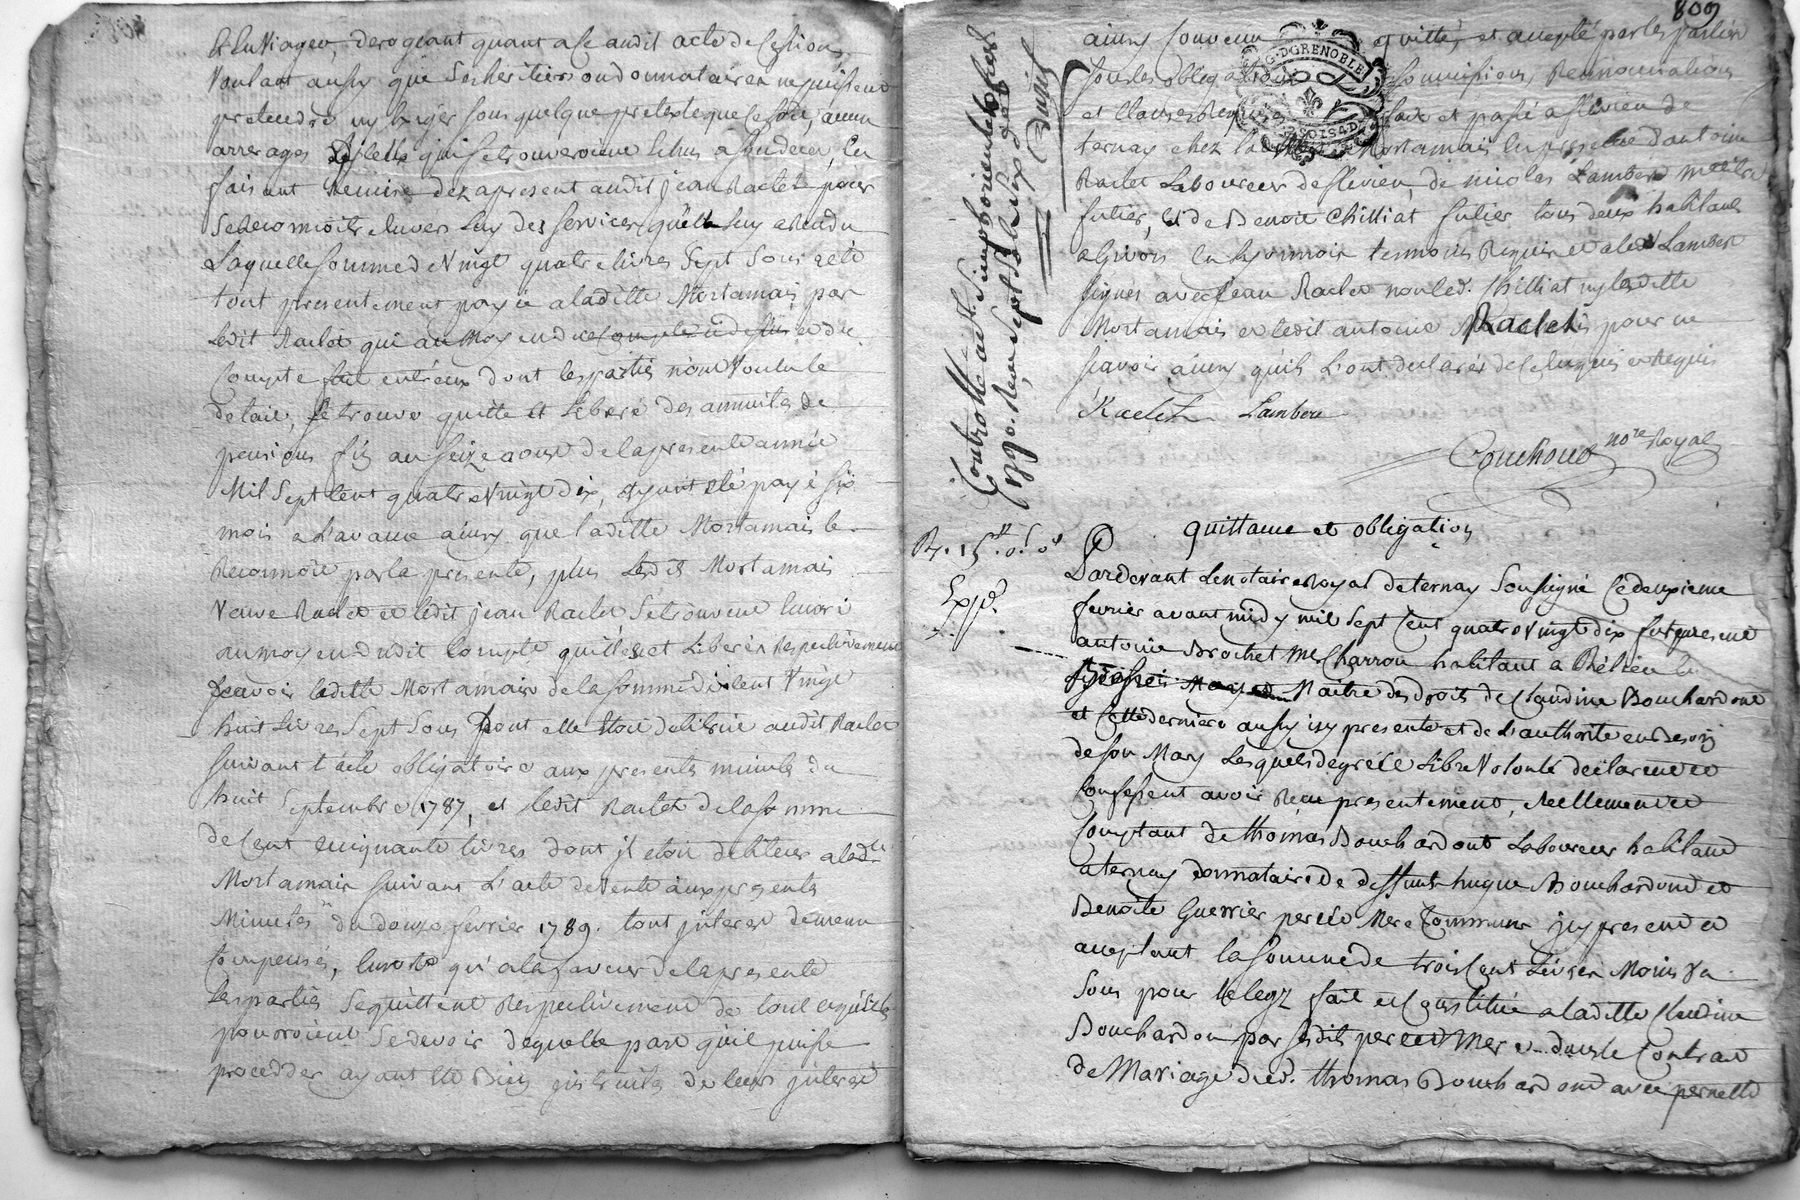 et du Viager derogeant quant a ce audit acte de Cession,
Voulant ainsy que ses heritiers ou donnataires ne puissent
pretendre ny Exiger sous quelque pretexte que ce soit, aucun
arrerages
faisant Remise dez apresent audit jean Raclet pour
Se reconnoitre envers Luy des services qu'elle luy a Rendu
Laquelle somme de Vingt quatre livres Sept Sous a été
tout presentement payée a laditte Mortamais par
Ledit Raclet qui au Moyen du et du
Compte fait entr'eux dont les parties n'ont Voulu le
detail, se trouve quitte et Liberé des annuités de
pensions au seize aoust de la presente année
Mil Sept Cent quatre Vingt dix, ayant été payé six
mois a L'avance ainsy que laditte Mortamais le
Reconnoit par la presente, plus Mortamais
Veuve Raclet et ledit jean Raclet, Se trouvent
au moyen dudit Compte quittes et Liberés Respectivement
sçavoir laditte Mortamais de la somme de Cent Vingt
huit Livres Sept Sous dont elle étoit debitrice audit Raclet
suivant l'acte obligatoire aux presentes minutes du
huit Septembre 1787, et ledit Raclet de la somme
de Cent Cinquante livres dont il etoit debiteur a ladte
Mortamais suivant L'acte de Vente aux presentes
Minutes du douze fevrier 1789. tout interet demeurant
Compensés, qu'a la faveur de la presente
Les parties Se quittent Respectivement de tout ce qu'elles
pourroient Se devoir de quelle part qu'il puisse
proceder ayant été Bien instruites de leurs interet
809
ainsy Convenu quitté, et accepté par les parties
sous les obligations soumissions, Renonciations
G. D GRENOBLE
et Clauses Requises fait et passé a flevieu de
ternay chez la Mortamais En presence d'antoine
Raclet Laboureur de flevieu, de nicolas Lambert
et de Benoit Chilliat tous deux habitants
a Givors en Lyonnois temoins Requis et a led. Lambert
signés avec jean Raclet non led. Chilliat ny laditte
Mortamais et ledit antoine Raclet pour ne
sçavoir ainsy qu'ils L'ont declarés de Ce Enquis et Requis
Raclet Lambert
Couchoud nore Royal
Controllé a St. Simphorien le
1790. Reçu sept
quittance et obligation
R. 15
Exp.
Pardevant Le notaire Royal de ternay Soussigné Ce deuxieme
fevrier avant midy mil Sept Cent quatre Vingt dix fut present
antoine Brochet Me Charron habitant a
Maitre des droits de Claudine Bouchardont
et Cette derniere aussy icy presente et de L'authorité en Besoin
de son Mary Lesquels de gré et Libre Volonté declarent et
Confessent avoir Reçu presentement, Reellement et
Comptant de thomas Bouchardont Laboureur habitant
a ternay donnataire de deffunt hugue Bouchardont et
Benoite Guerrier pere et Mere Communs icy present et
acceptant la somme de trois Cent Livres Moins Un
Sous pour le legz fait et Constitué a laditte Claudine
Bouchardon par sesdits pere et Mere dans le Contrat
de Mariage dud. thomas Bouchardont avec pernette